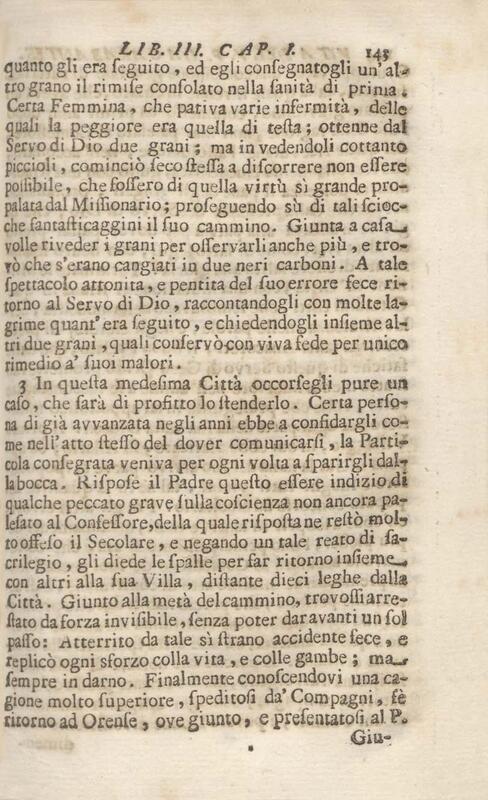 LIB. III. CAP. I. 145
quanto gli era seguito, ed egli consegnatogli un' al-
tro grano il rimise consolato nella sanità di prima.
Certa Femmina, che pativa varie infermità, delle
quali la peggiore era quella di testa; ottenne dal
Servo di Dio due grani; ma in vedendoli cottanto
piccioli, cominciò seco stessa a discorrere non essere
possibile, che fossero di quella virtù sì grande pro-
palata dal Missionario; proseguendo sù di tali scioc-
che fantasticaggini il suo cammino. Giunta a casa
volle riveder i grani per osservarli anche più, e tro-
vò che s'erano cangiati in due neri carboni. A tale
spettacolo attonita, e pentita del suo errore fece ri-
torno al Servo di Dio, raccontandogli con molte la-
grime quant' era seguito, e chiedendogli insieme al-
tri due grani, quali conservò con viva fede per unico
rimedio a' suoi malori.
3 In questa medesima Città occorsegli pure un
caso, che sarà di profitto lo stenderlo. Certa perso-
na di già avvanzata negli anni ebbe a confidargli co-
me nell'atto stesso del dover comunicarsi, la Parti-
cola consegrata veniva per ogni volta a sparirgli dal-
la bocca. Rispose il Padre questo essere indizio di
qualche peccato grave sulla coscienza non ancora pa-
lesato al Confessore, della quale risposta ne restò mol-
to offeso il Secolare, e negando un tale reato di sa-
crilegio, gli diede le spalle per far ritorno insieme
con altri alla sua Villa, distante dieci leghe dalla
Città. Giunto alla metà del cammino, trovossi arre-
stato da forza invisibile, senza poter dar avanti un sol
passo: Atterrito da tale sì strano accidente fece, e
replicò ogni sforzo colla vita, e colle gambe; ma
sempre in darno. Finalmente conoscendovi una ca-
gione molto superiore, speditosi da' Compagni, fè
ritorno ad Orense, ove giunto, e presentatosi al P.
Giu-